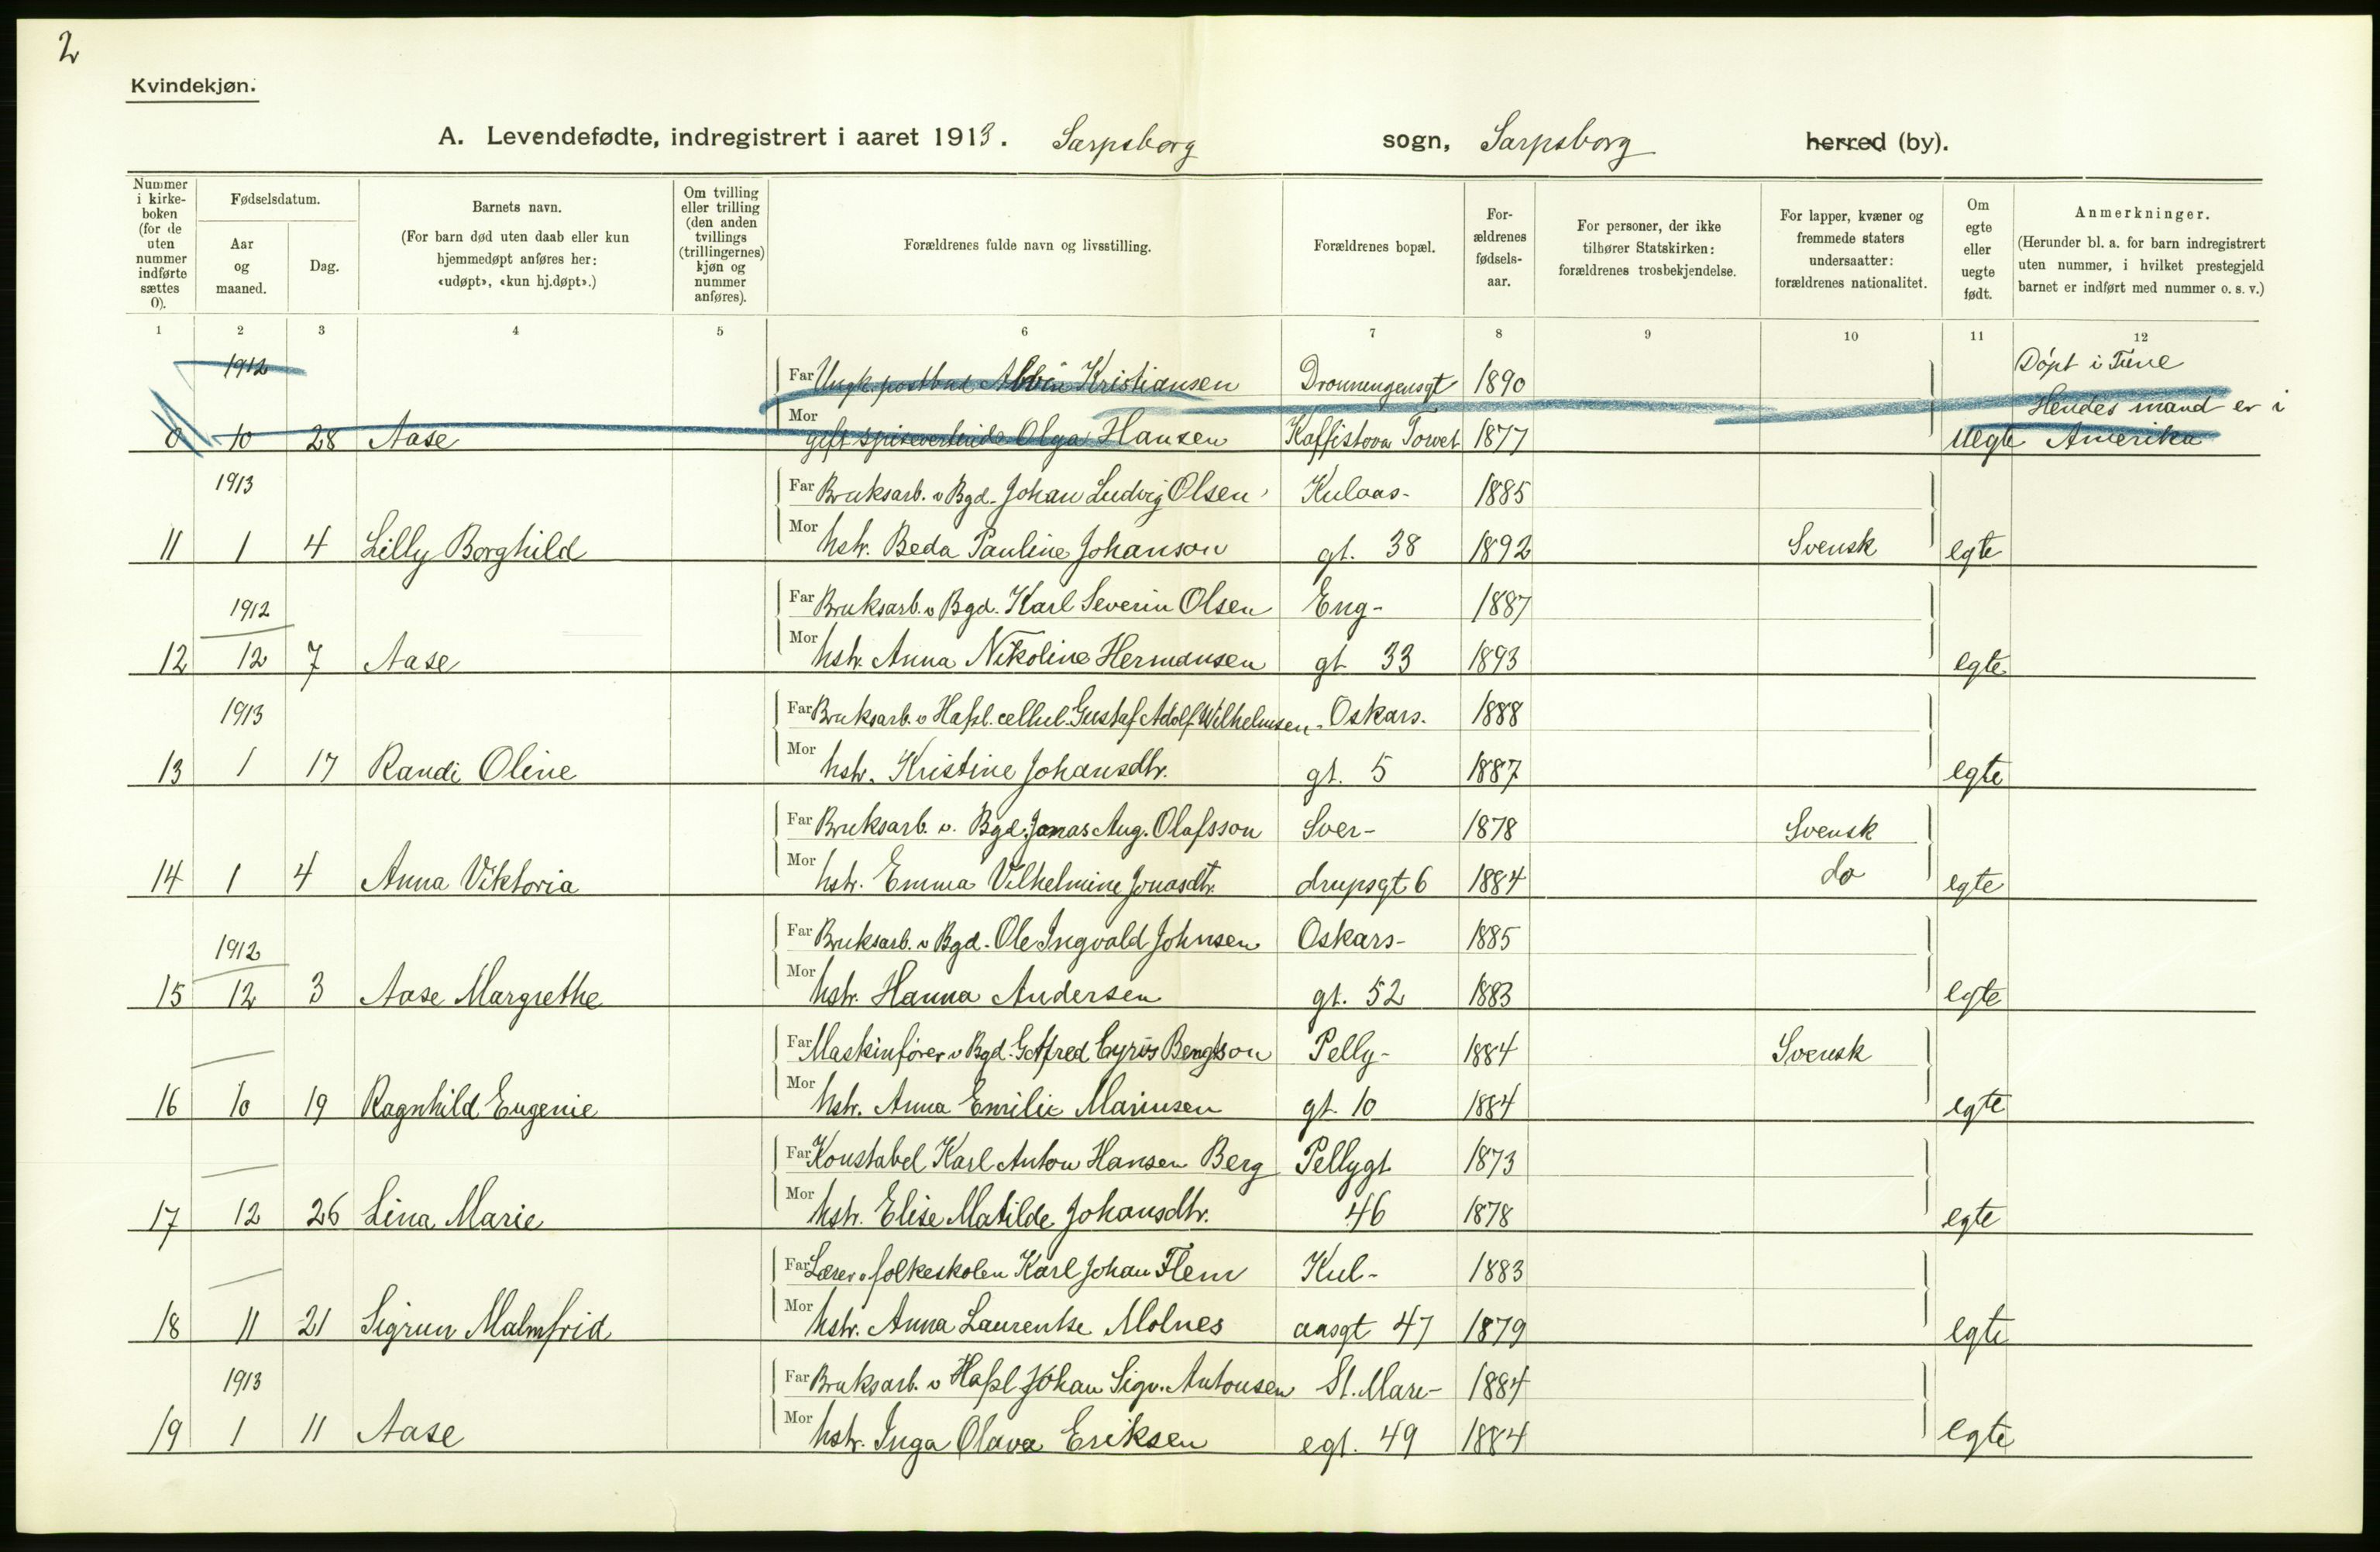 2
Kvindekjøn.
A. Levendefødte, indregistrert i aaret 1913. Sarpsborg sogn, Sarpsborg herred (by).
Nummer i kirkeboken (for de uten nummer indførte sættes 0).
Fødselsdatum.
Aar og maaned.
Dag.
Barnets navn.
(For barn død uten daab eller kun hjemmedøpt anføres her: «udøpt», «kun hj.døpt».)
Om tvilling eller trilling (den anden tvillings (trillingernes) kjøn og nummer anføres).
Forældrenes fulde navn og livsstilling.
Forældrenes bopæl.
Forældrenes fødselsaar.
For personer, der ikke tilhører Statskirken: forældrenes trosbekjendelse.
For lapper, kvæner og fremmede staters undersaatter: forældrenes nationalitet.
Om egte eller uegte født.
Anmerkninger.
(Herunder bl. a. for barn indregistrert uten nummer, i hvilket prestegjeld barnet er indført med nummer o. s. v.)
1 2 3 4 5 6 7 8 9 10 11 12
1912 Far Ungk. postbud Albin Kristiansen Dronningensgt 1890 Döpt i Tune
Hendes mand er i
0 10 28 Aase Mor gift Olga Hansen Kaffistova Torvet 1877 uegte Amerika
1913 Far Bruksarb. v Bgd. Johan Ludvig Olsen Kulaas- 1885
11 1 4 Lilly Borghild Mor hstr. Beda Pauline Johanson gt. 38 1892 Svensk egte
1912 Far Bruksarb. v Bgd. Karl Severin Olsen Eng- 1887
12 12 7 Aase Mor hstr. Anna Nikoline Hermansen gt 33 1893 egte
1913 Far Bruksarb. v Hafsl. cellul. Gustaf Adolf Wilhelmsen Oskars- 1888
13 1 17 Randi Oline Mor hstr. Kristine Johansdtr. gt. 5 1887 egte
Far Bruksarb. v. Bgd. Jonas Aug. Olafsson Sver- 1878 Svensk
14 1 4 Anna Viktoria Mor hstr. Emma Vilhelmine Jonasdtr. drupsgt 6 1884 do egte
1912 Far Bruksarb. v Bgd. Ole Ingvald Johnsen Oskars- 1885
15 12 3 Aase Margrethe Mor hstr. Hanna Andersen gt. 52 1883 egte
Far Maskinfører v Bgd. Gotfred Cyrus Bengtson Pelly- 1884 Svensk
16 10 19 Ragnhild Eugenie Mor hstr. Anna Emilie Mariusen gt. 10 1884 egte
Far Konstabel Karl Anton Hansen Berg Pellygt 1873
17 12 26 Lina Marie Mor hstr. Elise Matilde Johansdtr. 46 1878 egte
Far Lærer v folkeskolen Karl Johan Flem Kul- 1883
18 11 21 Sigrun Malmfrid Mor hstr. Anna Laurentse Molnes aasgt 47 1879 egte
1913 Far Bruksarb. v Hafsl Johan Sigv. Antonsen St. Mari- 1884
19 1 11 Aase Mor hstr. Inga Olava Eriksen egt. 49 1884 egte